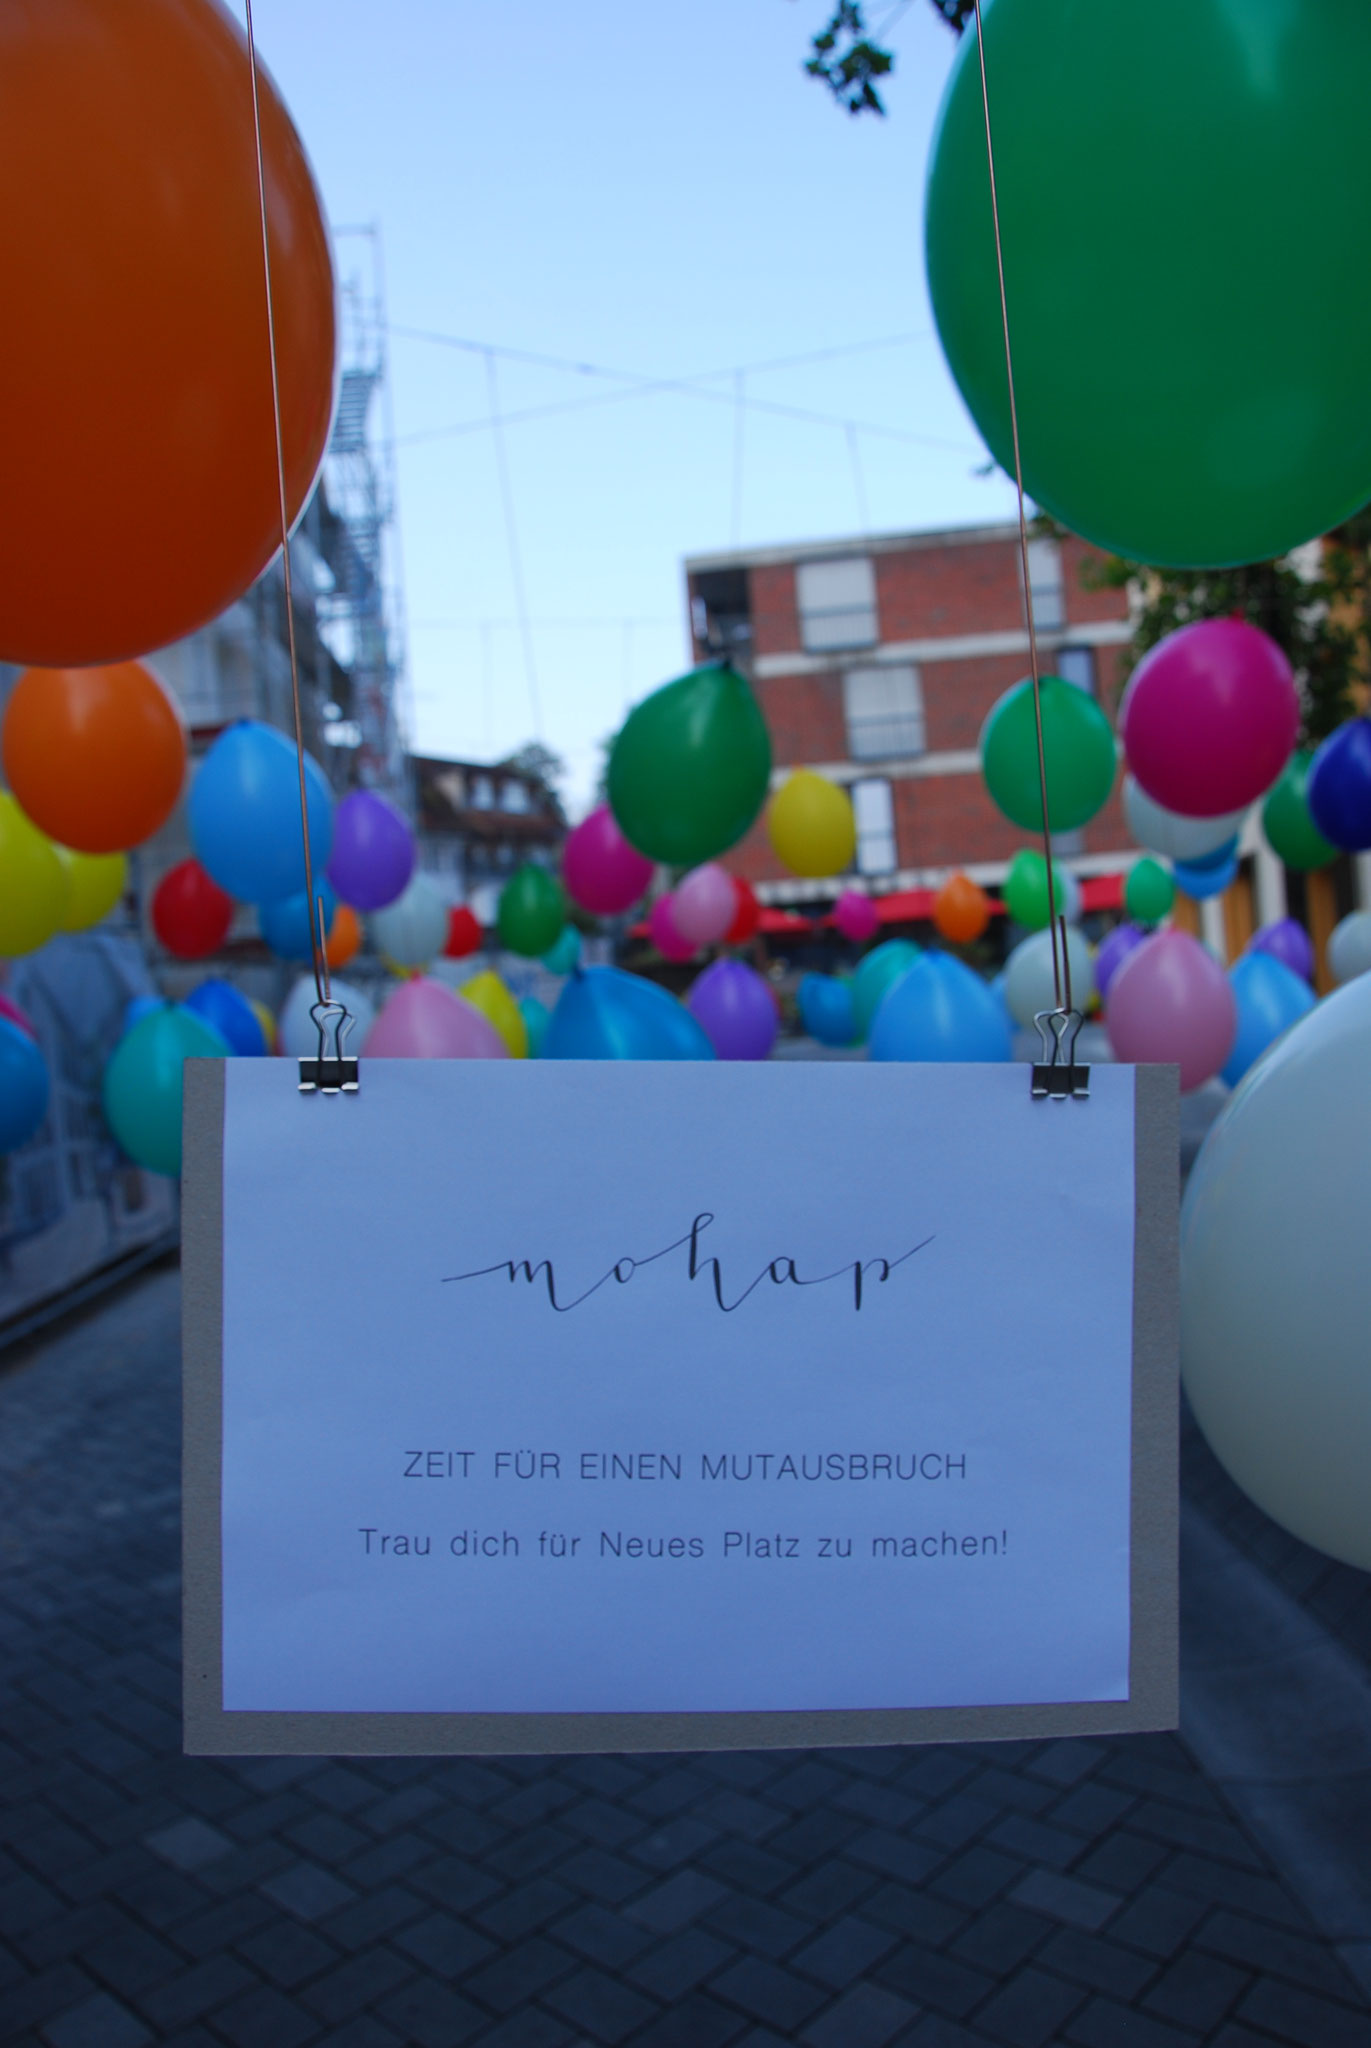 mohap
ZEIT FÜR EINEN MUTAUSBRUCH
Trau dich für Neues Platz zu machen!